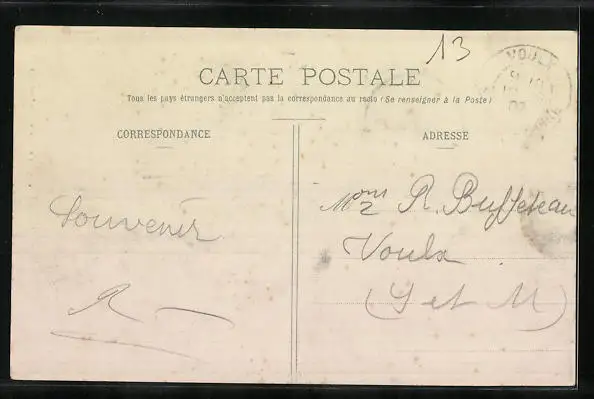 13
VOULX
CARTE POSTALE
Tous les pays étrangers n'acceptent pas la correspondance au recto (Se renseigner à la Poste)
CORRESPONDANCE
ADRESSE
Souvenir
R
R. Buffeteau
Voulx
(S et M)